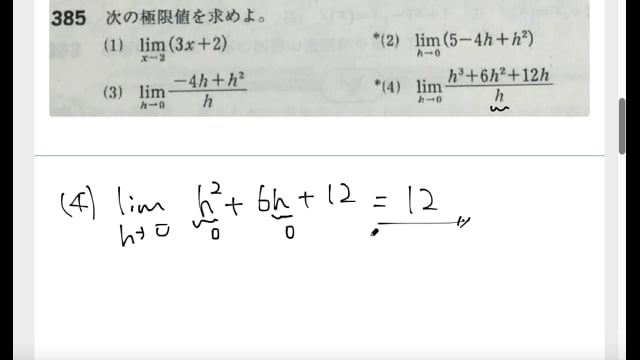 385 次の極限値を求めよ。
(1) lim x→2 (3x+2) *(2) lim h→0 (5−4h+h²)
(3) lim h→0 (−4h+h²)/h *(4) lim h→0 (h³+6h²+12h)/h
(4) lim h→0 h²+6h+12 = 12
0 0